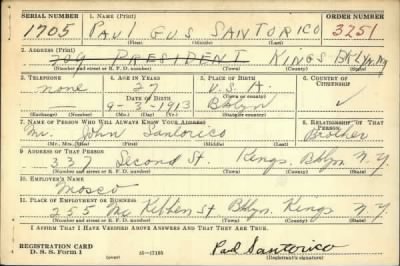 SERIAL NUMBER 1. NAME (Print) ORDER NUMBER
1705 PAUL GUS SANTORICO 3251
(First) (Middle) (Last)
2. ADDRESS (Print)
709 PRESIDENT KINGS BKLYN NY
(Number and street or R. F. D. number) (Town) (County) (State)
3. TELEPHONE 4. AGE IN YEARS 5. PLACE OF BIRTH 6. COUNTRY OF CITIZENSHIP
none 27 U.S.A.
DATE OF BIRTH
9-3-1913 Bklyn ✓
(Exchange) (Number) (Mo.) (Day) (Yr.) (State or country)
7. NAME OF PERSON WHO WILL ALWAYS KNOW YOUR ADDRESS 8. RELATIONSHIP OF THAT PERSON
Mr. John Santorico Brother
(Mr., Mrs., Miss) (First) (Middle) (Last)
9. ADDRESS OF THAT PERSON
337 Second St. Kings, Bklyn N.Y.
(Number and street or R. F. D. number) (Town) (County) (State)
10. EMPLOYER'S NAME
Mosco
11. PLACE OF EMPLOYMENT OR BUSINESS
255 Mc Kibben St Bklyn. Kings N.Y.
(Number and street or R. F. D. number) (Town) (County) (State)
I AFFIRM THAT I HAVE VERIFIED ABOVE ANSWERS AND THAT THEY ARE TRUE.
REGISTRATION CARD
D. S. S. Form 1 (over) Paul Santorico
(Registrant's signature)